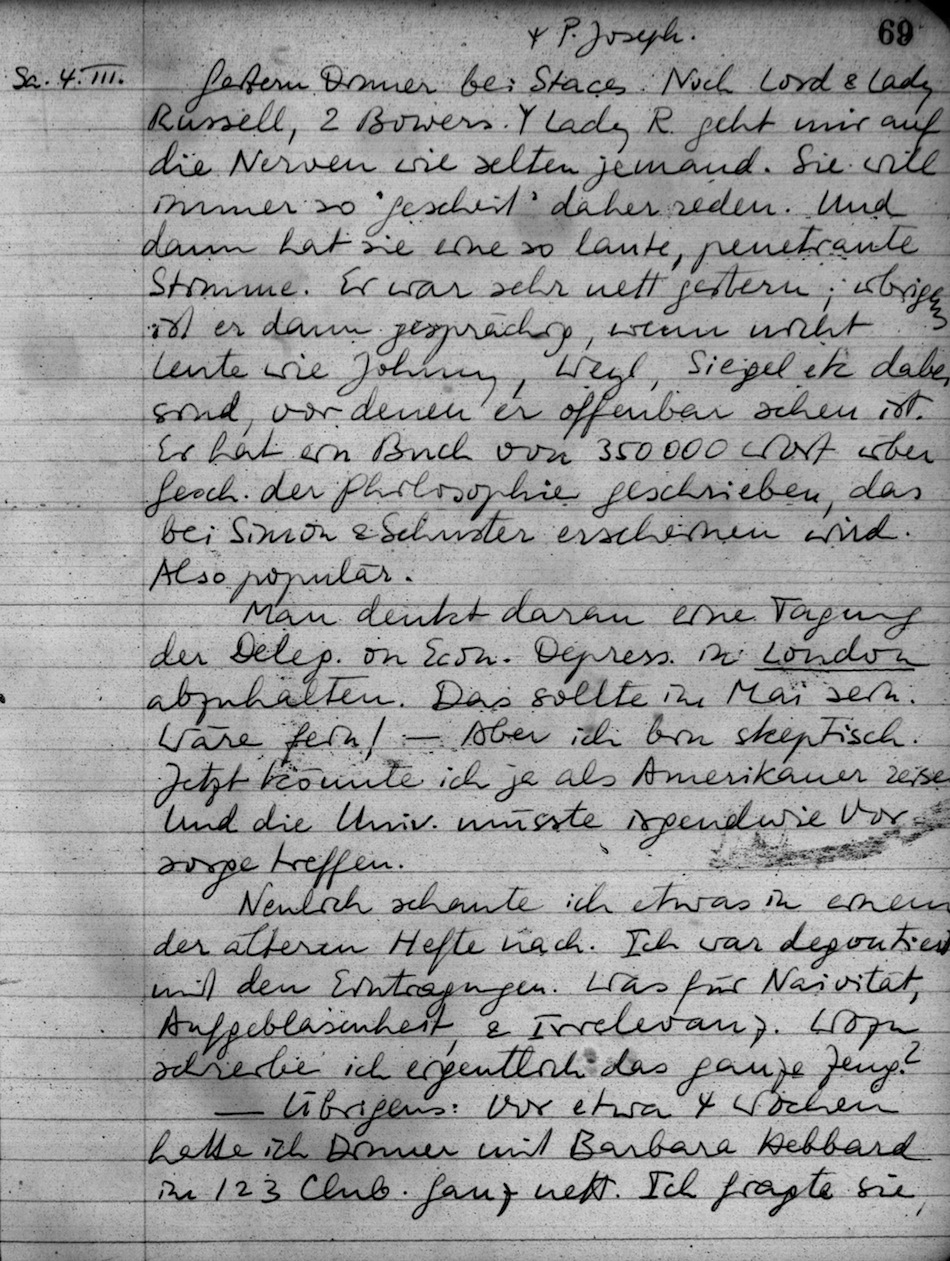 + P. Joseph. 69
Sa. 4. III. Gestern Dinner bei Staces. Noch Lord & Lady
Russell, 2 Bowers. + Lady R. geht mir auf
die Nerven wie selten jemand. Sie will
immer so 'gescheit' daher reden. Und
dann hat sie eine so laute, penetrante
Stimme. Er war sehr nett gestern; übrigens
ist er dann gesprächig, wenn nicht
Leute wie Johnny, Weyl, Siegel etc dabei
sind, vor denen er offenbar scheu ist.
Er hat ein Buch von 350000 Wort über
Gesch. der Philosophie geschrieben, das
bei Simon & Schuster erscheinen wird.
Also populär.
Man denkt daran eine Tagung
der Deleg. on Econ. Depress. in London
abzuhalten. Das sollte im Mai sein.
Wäre fein! — Aber ich bin skeptisch.
Jetzt könnte ich ja als Amerikaner reisen
Und die Univ. müsste irgendwie Vor-
sorge treffen.
Neulich schaute ich etwas in einem
der älteren Hefte nach. Ich war degoutiert
mit den Eintragungen. Was für Naivität,
Aufgeblasenheit, & Irrelevanz. Wozu
schreibe ich eigentlich das ganze Zeug?
— Übrigens: Vor etwa 4 Wochen
hatte ich Dinner mit Barbara Hebbard
im 123 Club. Ganz nett. Ich fragte sie,